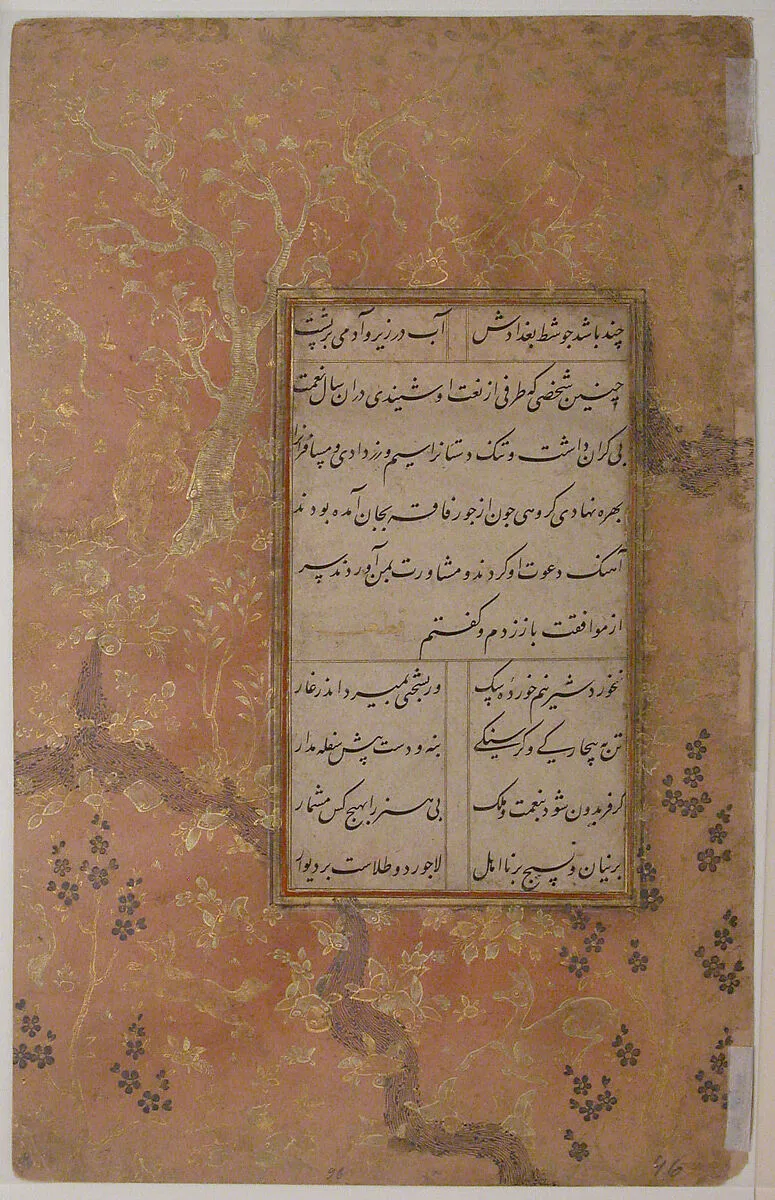 چند باشد جو شط بغدادش آب در زیر و آدمی بر پشت
چنین شخصی که طرفی از نعت او شنیدی در ان سال نعمت
بی کران داشت و تنک دستانرا سیم و زر دادی و مسافرانرا
بهره نهادی کروهی جون از جور فاقه بجان آمده بودند
آهنک دعوت او کردند و مشاورت بمن آوردند سر
از موافقت باز زدم و کفتم
نخورد شیر نیم خورده سک ور بسختی بمیرد اندر غار
تن به بیچارکی و کرسنکی بنه و دست پیش سفله مدار
کر فریدون شود بنعمت و ملک بی هنر را بهیچ کس مشمار
برنیان و نسیج بر نااهل لاجورد و طلاست بر دیوار
96